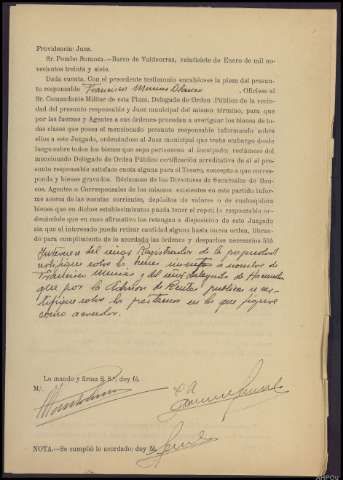 Providencia: Juez.
Sr. Pombo Somoza.—Barco de Valdeorras, veintisiete de Enero de mil no-
vecientos treinta y siete.
Dada cuenta. Con el precedente testimonio encabécese la pieza del presun-
to responsable Francisco Blanco . Ofíciese al
Sr. Comandante Militar de esta Plaza, Delegado de Orden Público de la vecin-
dad del presunto responsable y Juez municipal del mismo término, para que
por las fuerzas y Agentes a sus órdenes procedan a averiguar los bienes de to-
das clases que posea el mencionado presunto responsable informando sobre
ellos a este Juzgado, ordenándose al Juez municipal que trabe embargo desde
luego sobre todos los bienes que sepa pertenecen al inculpado; recábese del
mencionado Delegado de Orden Público certificación acreditativa de si el pre-
sunto responsable satisface cuota alguna para el Tesoro, concepto a que corres-
ponda y bienes gravados. Interésese de los Directores de Sucursales de Ban-
cos, Agentes o Corresponsales de los mismos existentes en este partido infor-
me acerca de las cuentas corrientes, depósitos de valores o de cualesquiera
bienes que en dichos establecimientos pueda tener el repetido responsable or-
denándole que en caso afirmativo los retengan a disposición de este Juzgado
sin que el interesado pueda retirar cantidad alguna hasta nueva orden, librán-
dose para cumplimiento de lo acordado las órdenes y despachos necesarios.
Interésese del señor Registrador de la propiedad
certifique sobre los bienes inscritos a nombre de
Francisco y del señor Delegado de Hacienda
que por la públicas cer-
tifique sobre los préstamos en los que figure
como acreedor.
Lo mandó y firma S. Sª. doy fé.
M/
NOTA.—Se cumplió lo acordado; doy fé.